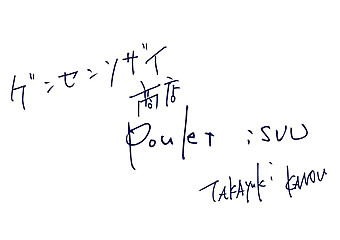 ゲンセンソザイ
商店
Poulet : SUU
TAKAYuki KANOU